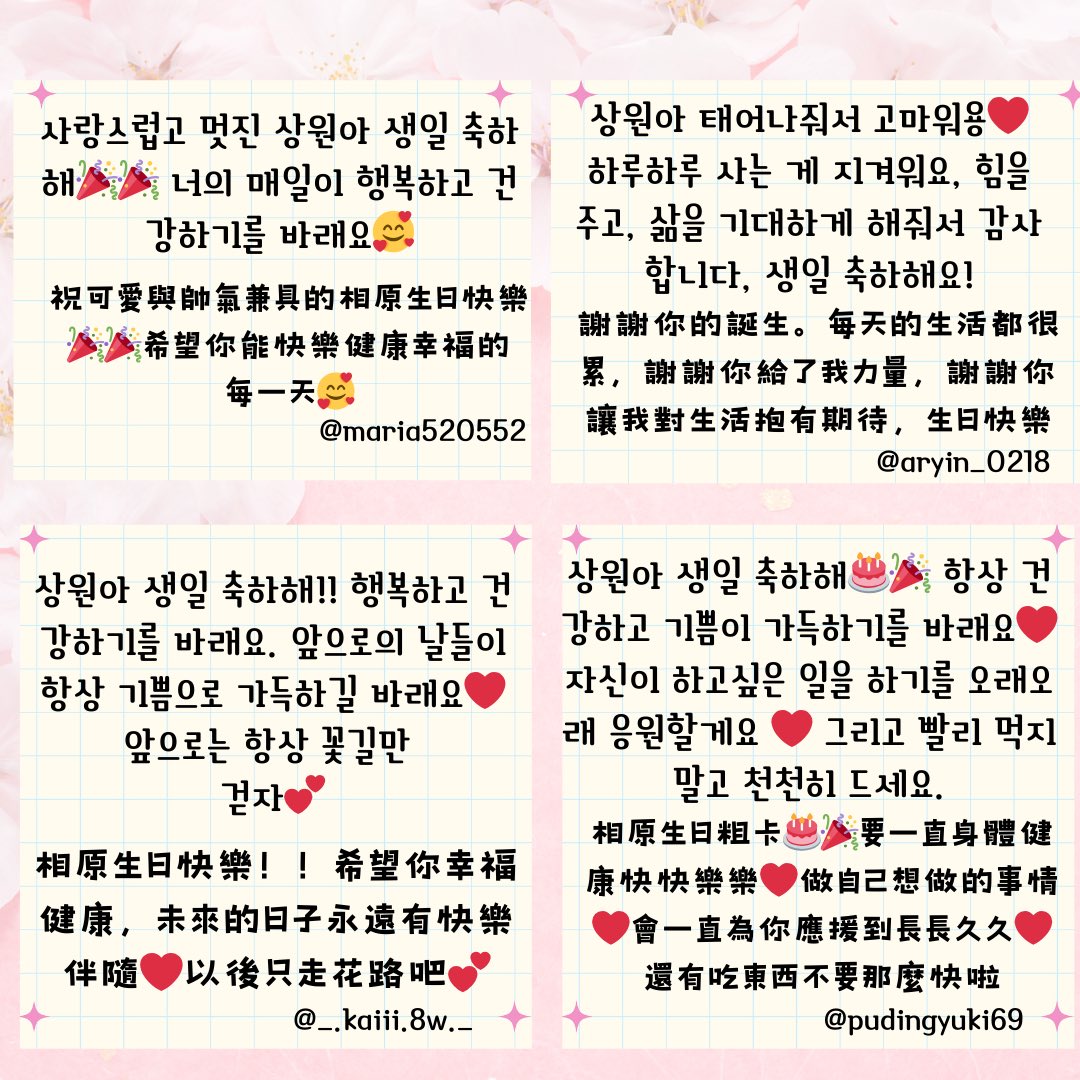 사랑스럽고 멋진 상원아 생일 축하
해🎉🎉 너의 매일이 행복하고 건
강하기를 바래요🥰
祝可愛與帥氣兼具的相原生日快樂
🎉🎉希望你能快樂健康幸福的
每一天🥰
@maria520552
상원아 태어나줘서 고마워용❤️
하루하루 사는 게 지겨워요, 힘을
주고, 삶을 기대하게 해줘서 감사
합니다, 생일 축하해요!
謝謝你的誕生。每天的生活都很
累，謝謝你給了我力量，謝謝你
讓我對生活抱有期待，生日快樂
@aryin_0218
상원아 생일 축하해!! 행복하고 건
강하기를 바래요. 앞으로의 날들이
항상 기쁨으로 가득하길 바래요❤️
앞으로는 항상 꽃길만
걷자💕
相原生日快樂！！希望你幸福
健康，未來的日子永遠有快樂
伴隨❤️以後只走花路吧💕
@_.kaiii.8w._
상원아 생일 축하해🎂🎉 항상 건
강하고 기쁨이 가득하기를 바래요❤️
자신이 하고싶은 일을 하기를 오래오
래 응원할게요 ❤️ 그리고 빨리 먹지
말고 천천히 드세요.
相原生日粗卡🎂🎉要一直身體健
康快快樂樂❤️做自己想做的事情
❤️會一直為你應援到長長久久❤️
還有吃東西不要那麼快啦
@pudingyuki69